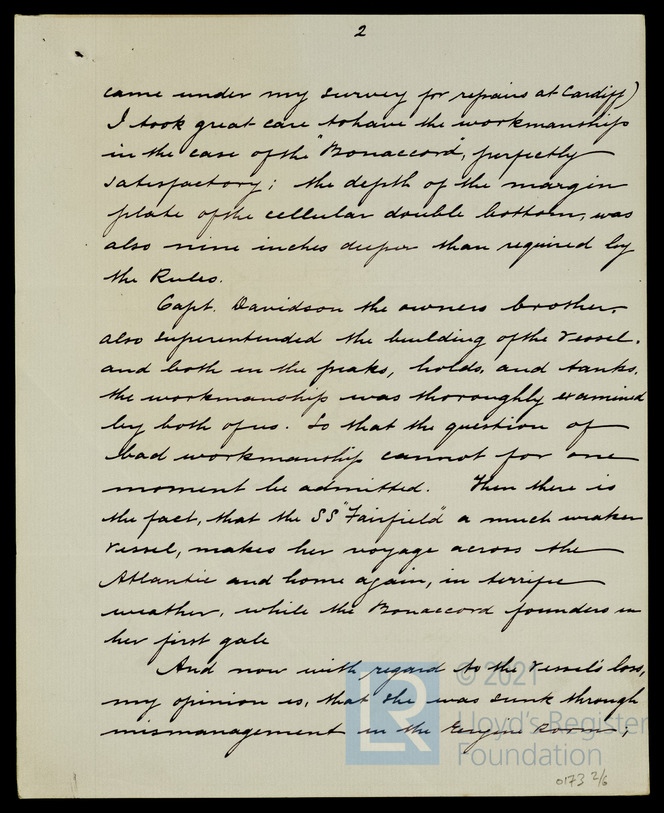 2
came under my survey for repairs at Cardiff)
I took great care to have the workmanship
in the case of the "Bonaccord", perfectly
satisfactory; the depth of the margin
plate of the cellular double bottom, was
also nine inches deeper than required by
the Rules.
Capt. Davidson the owners brother,
also superentended the building of the vessel.
and both in the peaks, holds, and tanks,
the workmanship was thoroughly examined
by both of us. So that the question of
bad workmanship cannot for one
moment be admitted. Then there is
the fact, that the SS "Fairfield" a much weaker
vessel, makes her voyage across the
Atlantic and home again, in terrific
weather, while the Bonaccord founders in
her first gale
And now with regard to the vessel's loss,
my opinion is, that she was sunk through
mismanagement in the Engine Room;
© 2021
LR
Lloyd's Register
Foundation
0173 2/6